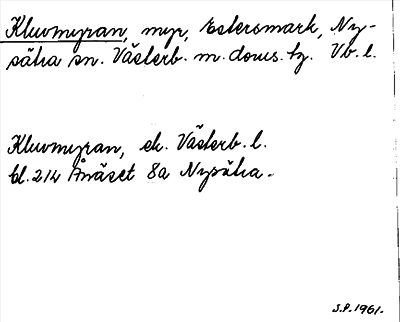 Kluvmyran, myr, Estersmark, Ny-
sätra sn. Västerb. m. doms. tg. Vb. l.
Kluvmyran, ek. Västerb. l.
bl. 214 Ånäset 8a Nysätra.
S.P. 1961.